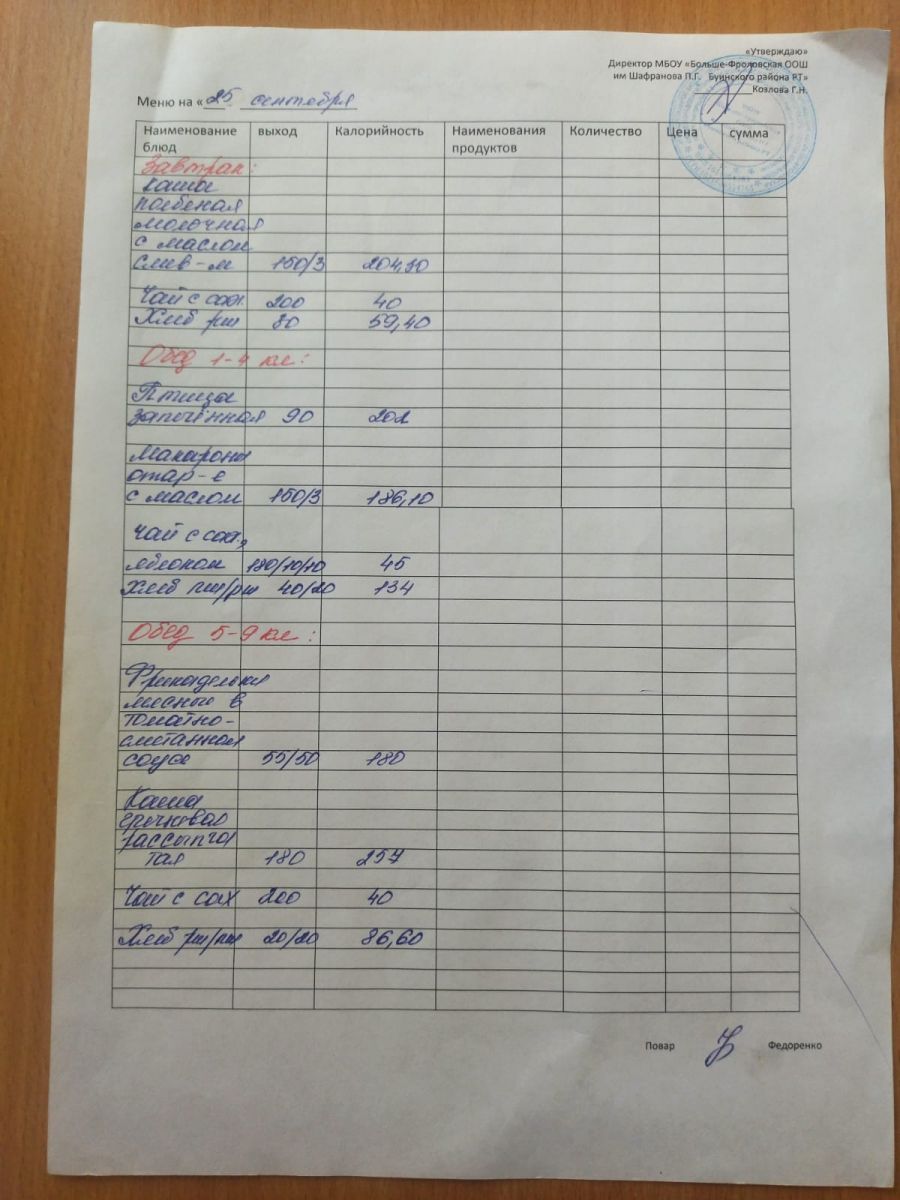 «Утверждаю»
Директор МБОУ «Больше-Фроловская ООШ
им Шафранова П.Г. Буинского района РТ»
Козлова Г.Н.
Меню на « 25 сентября
Наименование блюд выход Калорийность Наименования продуктов Количество Цена сумма
Завтрак:
каша
полбеная
молочная
с маслом
слив-м 150/3 204,30
Чай с сах. 200 40
Хлеб рж 30 59,40
Обед 1-4 кл:
Птица
запечённая 90 202
Макароны
отар-е
с маслом 150/3 186,10
чай с сах,
яблоком 180/10/10 45
Хлеб пш/рж 40/20 134
Обед 5-9 кл:
Фрикадельки
мясные в
томатно-
сметанном
соусе 55/50 180
Каша
гречневая
рассыпча
тая 180 257
Чай с сах 200 40
Хлеб рж/пш 20/20 86,60
Повар Федоренко